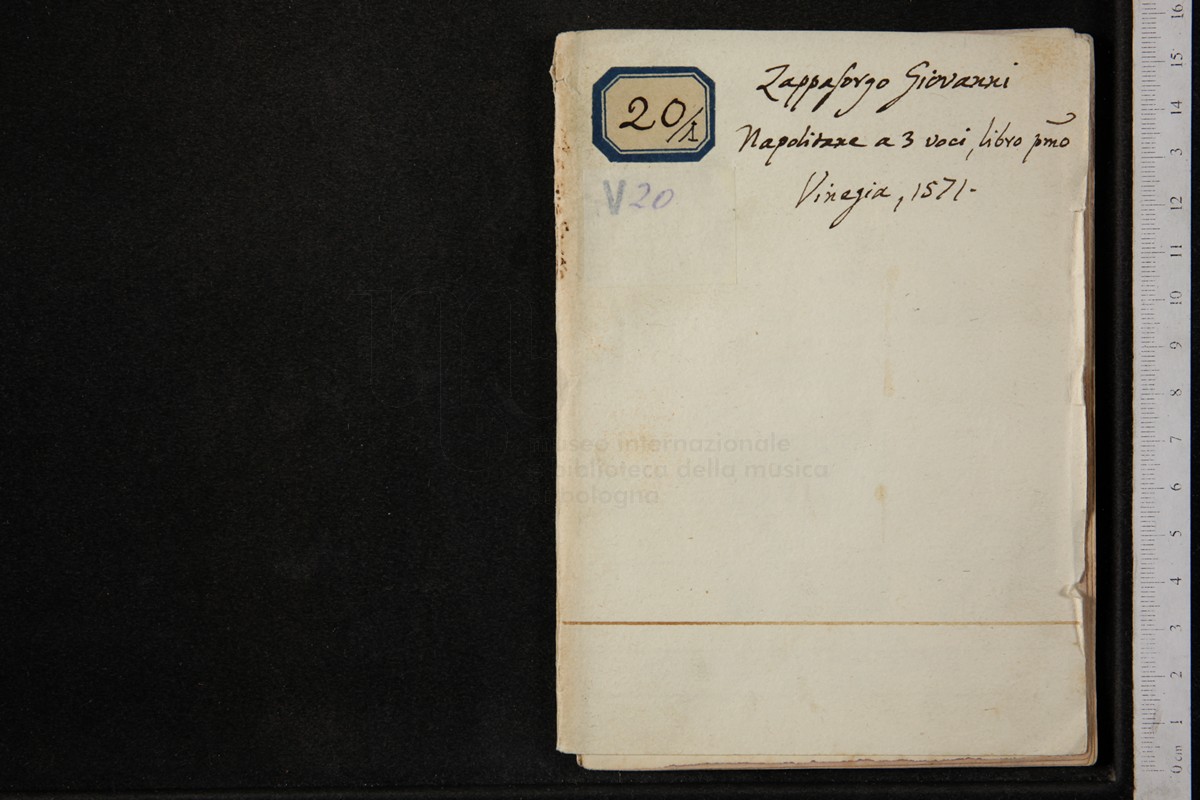 20/1
Zappasorgo Giovanni
Napolitane a 3 voci, libro pmo
Vinegia, 1571.
V20
museo internazionale
biblioteca della musica
bologna
16
15
14
3
12
11
10
9
8
7
6
5
4
3
2
1
0 cm